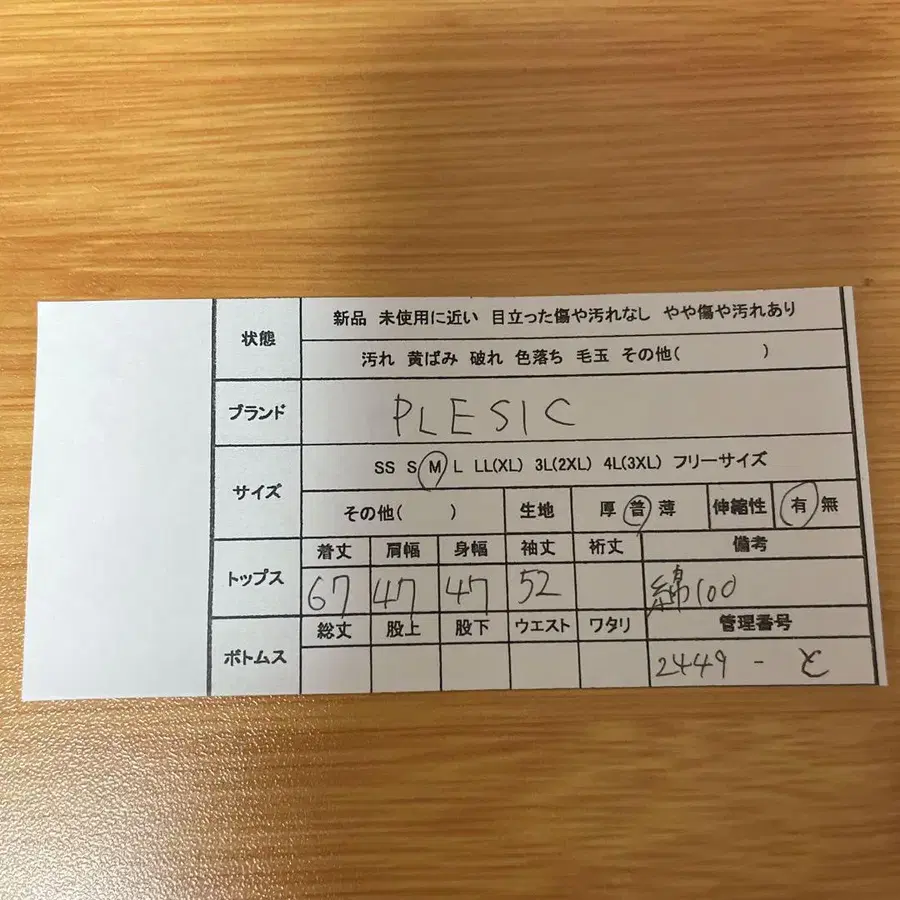 状態 新品 未使用に近い 目立った傷や汚れなし やや傷や汚れあり
汚れ 黄ばみ 破れ 色落ち 毛玉 その他( )
ブランド PLESIC
サイズ SS S M L LL(XL) 3L(2XL) 4L(3XL) フリーサイズ
その他( ) 生地 厚 普 薄 伸縮性 有 無
トップス 着丈 肩幅 身幅 袖丈 裄丈 備考
67 47 47 52 綿100
ボトムス 総丈 股上 股下 ウエスト ワタリ 管理番号
2449 - と